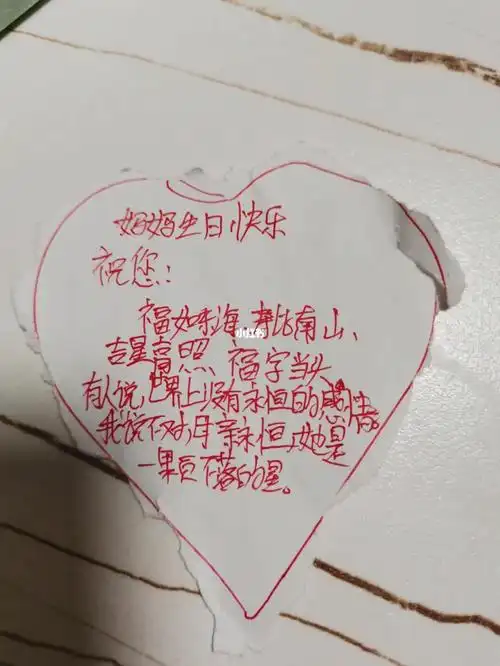 妈妈生日快乐
祝您：
福如东海，寿比南山、
吉星高照 福字当头
有人说世界上没有永恒的感情。
我说不对，母亲永恒，她是
一颗不落的星。
小红书